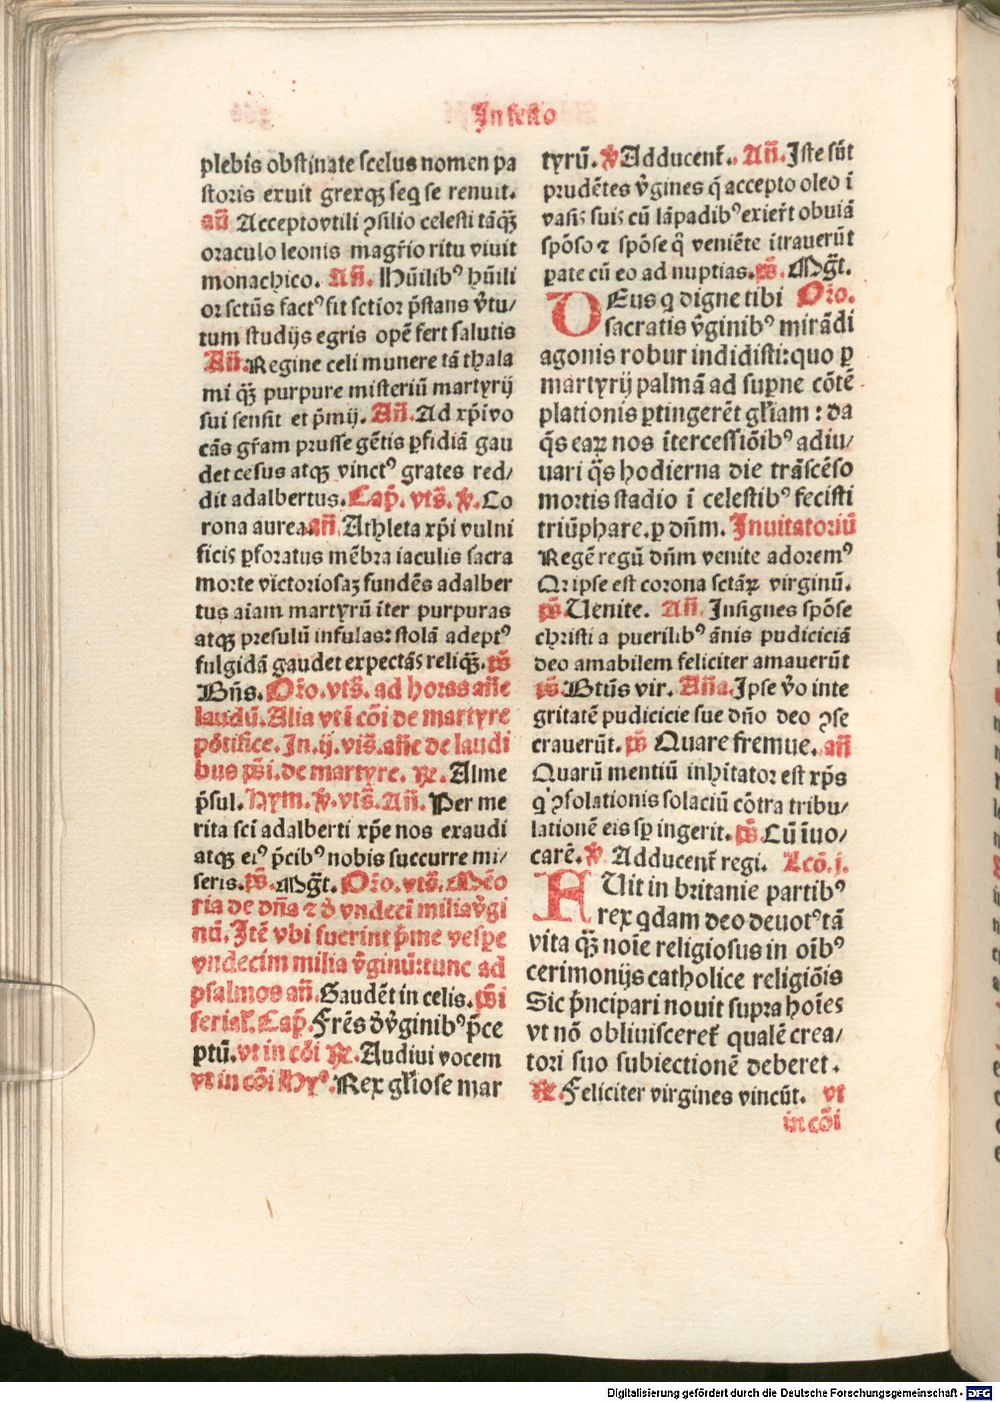 In festo
plebis obstinate scelus nomen pa
storis exuit grexqꝫ seq̄ se renuit.
añ Accepto vtili ꝯsilio celesti tãqꝫ̃
oraculo leonis magr̃io ritu viuit
monachico. Añ. Hũilibꝰ hũili
or sctũs factꝰ sit sctior p̃stans v̓tu/
tum studijs egris opẽ fert salutis
Añ. Regine celi munere tã thala
mi qꝫ̃ purpure misteriũ martyrij
sui sensit et p̃mij. Añ. Ad xp̃i vo
cãs gr̃am prusse gẽtis ꝑfidiã gau
det cesus atqꝫ vinctꝰ grates red/
dit adalbertus. Cap̃. vts̃. ℣. Co
rona aurea. añ. Athleta xp̃i vulni
ficis ꝑforatus mẽbra iaculis sacra
morte victoriosaꝫ fundẽs adalber
tus aĩam martyrũ ĩter purpuras
atqꝫ presulũ infulas: stolã adeptꝰ
fulgidã gaudet expectãs reliqꝫ̃. ps̃
Bñs. Or̃o. vts̃. ad horas añe
laudũ. Alia vt ĩ cõi de martyre
põtifice. In .ij. vis̃. añe de laudi
bus ps̃i. de martyre. ℞. Alme
p̃sul. Hym. ℣. vts̃. Añ. Per me
rita sci adalberti xp̃e nos exaudi
atqꝫ eiꝰ p̃cibꝰ nobis succurre mi/
seris. ps̃. Mg̃t. Or̃o. vts̃. Mẽo
ria de dña ⁊ d̓ vndeci milia v̓gi
nũ. Itẽ vbi fuerint p̃me vespe
vndecim milia v̓ginũ: tunc ad
psalmos añ. Gaudẽt in celis. ps̃i
feriaƚ. Cap̃. Frẽs d̓ v̓ginibꝰ p̃ce
ptũ. vt in cõi ℞. Audiui vocem
vt in cõi Hyꝰ. Rex gƚiose mar
tyrũ. ℣ Adducenƭ. Añ. Iste sũt
prudẽtes v̓gines q̃ accepto oleo ĩ
vasis suis cũ lãpadibꝰ exier̃t obuiã
spõso ⁊ spõse q̃ veniẽte ĩtrauerũt
ꝑate cũ eo ad nuptias. ps̃. Mg̃t.
DEus q̇ digne tibi Or̃o.
sacratis v̓ginibꝰ mirãdi
agonis robur indidisti: quo ꝑ
martyrij palmã ad suꝑne cõtẽ
plationis ꝑtingerẽt gƚiam: da
q̃s eaꝝ nos ĩtercessiõibꝰ adiu/
uari q̃s hodierna die trãscẽso
mortis stadio ĩ celestibꝰ fecisti
triũphare. ꝑ dñm. Inuitatoriũ
Regẽ regũ dñm venite adoremꝰ
Qr ipse est corona sctãꝝ virginũ.
ps̃. Uenite. Añ. Insignes spõse
christi a puerilibꝰ ãnis pudiciciã
deo amabilem feliciter amauerũt
ps̃. Btũs vir. Aña. Ipse v̓o inte
gritatẽ pudicicie sue dño deo ꝯse
crauerũt. ps̃ Quare fremue. añ
Quarũ mentiũ inhitator est xp̃s
q̇ ꝯsolationis solaciũ cõtra tribu/
lationẽ eis sꝑ ingerit. ps̃. Cũ ĩuo/
carẽ. ℣ Adducenƭ regi. Lcõ. j.
FUit in britanie partibꝰ
rex q̇dam deo deuotꝰ tã
vita qꝫ̃ noĩe religiosus in oĩbꝰ
cerimonijs catholice religiõis
Sic p̃ncipari nouit supra hoĩes
vt nõ obliuiscereƭ qualẽ crea/
tori suo subiectionẽ deberet.
℞. Feliciter virgines vincũt. vt
in cõi
Digitalisierung gefördert durch die Deutsche Forschungsgemeinschaft - DFG